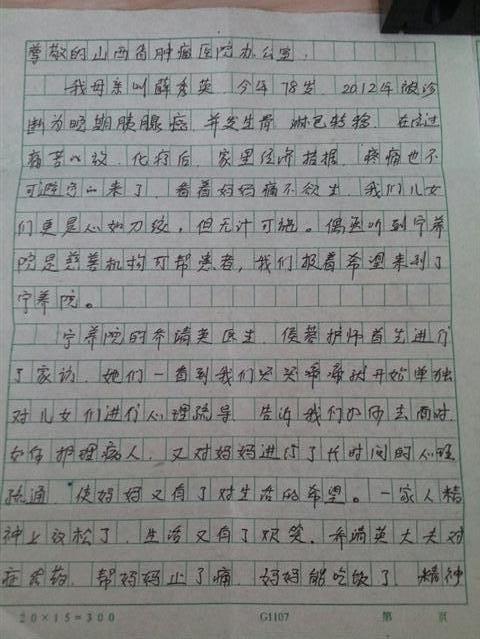 尊敬的山西省肿瘤医院办公室.
我母亲叫薛秀英 今年78岁 2012年被诊
断为晚期胰腺癌 并发生骨 淋巴转移. 在经过
痛苦的放、化疗后, 家里经济拮据, 疼痛也不
可避免的来了, 看着妈妈痛不欲生 我们儿女
们更是心如刀绞, 但无计可施。偶然听到宁养
院是慈善机构可帮患者, 我们报着希望来到了
宁养院。
宁养院的乔清英医生 侯慧护师首先进行
了家访. 她们一看到我们哭哭啼啼就开始单独
对儿女们进行心理疏导 告诉我们如何去面对,
如何护理病人. 又对妈妈进行了长时间的心理
疏通 使妈妈又有了对生活的希望。一家人精
神上放松了. 生活又有了欢笑. 乔清英大夫对
症发药. 帮妈妈止了痛. 妈妈能吃饭了. 精神
20×15=300 G1107 第 页